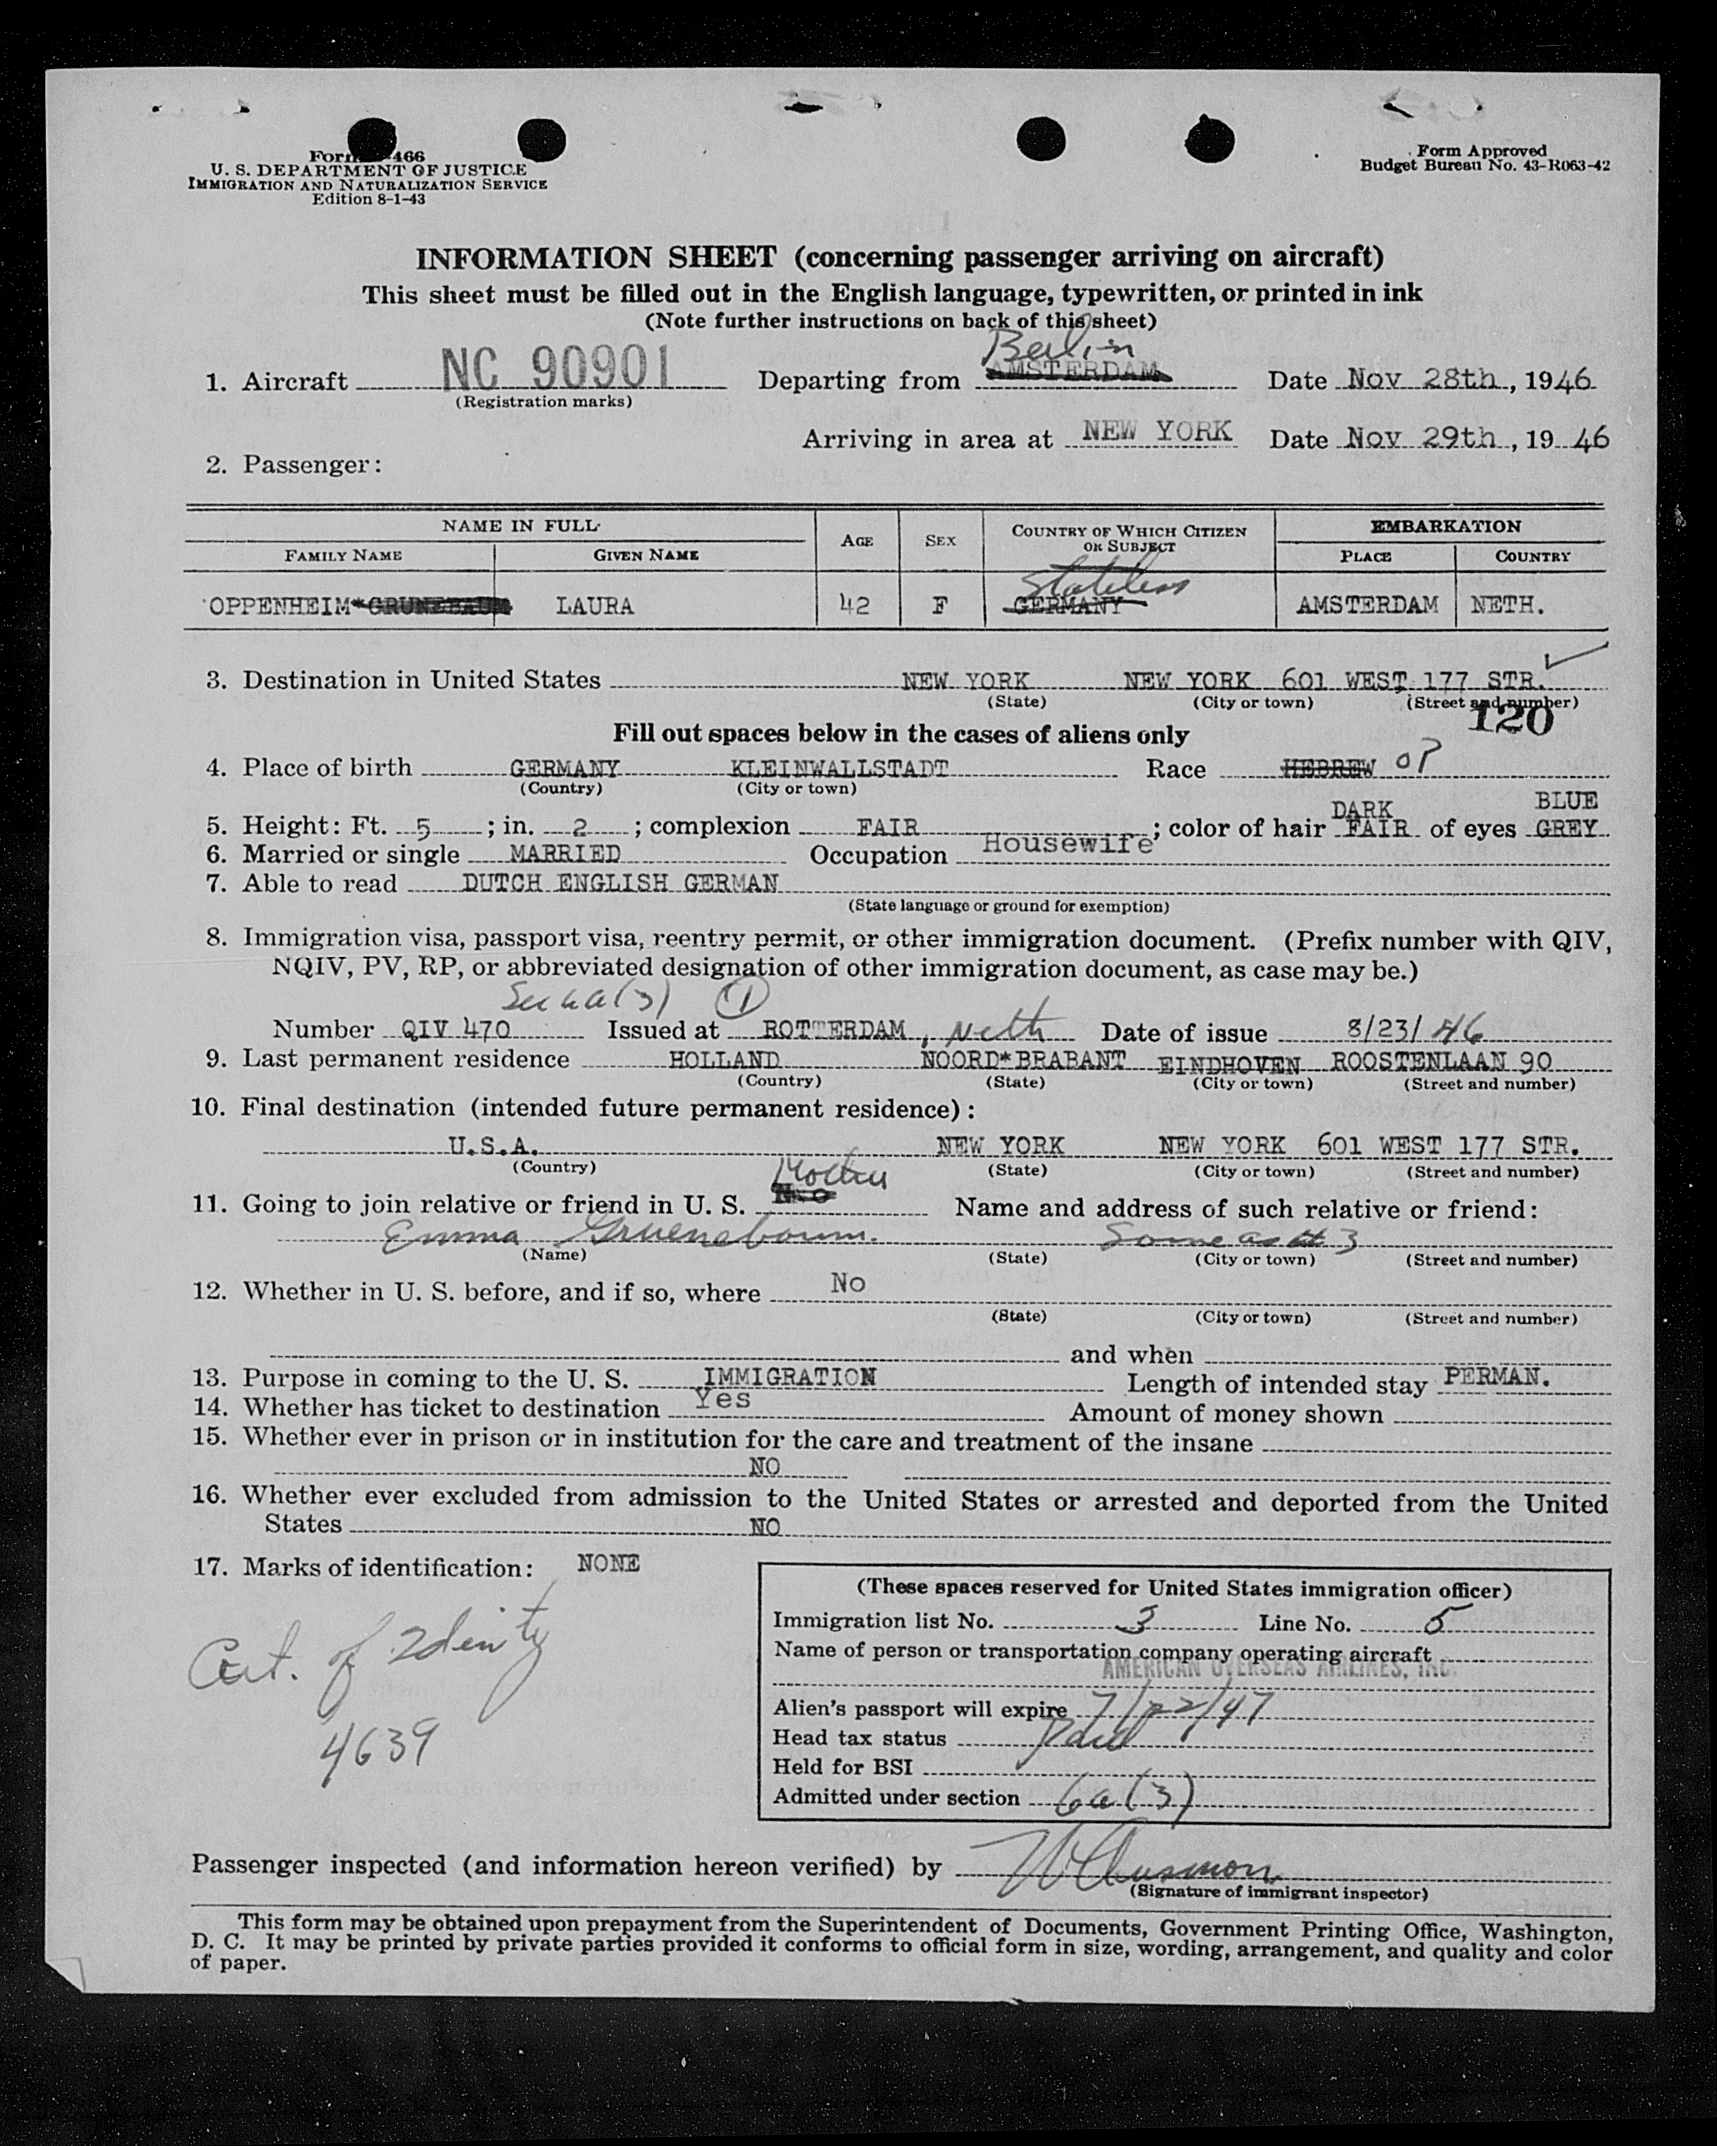 Form 466
U. S. DEPARTMENT OF JUSTICE
IMMIGRATION AND NATURALIZATION SERVICE
Edition 8-1-43
Form Approved
Budget Bureau No. 43-R063-42
INFORMATION SHEET (concerning passenger arriving on aircraft)
This sheet must be filled out in the English language, typewritten, or printed in ink
(Note further instructions on back of this sheet)
Berlin
1. Aircraft NC 90901 Departing from AMSTERDAM Date Nov 28th, 1946
(Registration marks)
Arriving in area at NEW YORK Date Nov 29th, 19 46
2. Passenger:
NAME IN FULL AGE SEX COUNTRY OF WHICH CITIZEN OR SUBJECT EMBARKATION
FAMILY NAME GIVEN NAME PLACE COUNTRY
Stateless
OPPENHEIM*GRUNEBAUM LAURA 42 F GERMANY AMSTERDAM NETH.
3. Destination in United States NEW YORK NEW YORK 601 WEST 177 STR.
(State) (City or town) (Street and number)
120
Fill out spaces below in the cases of aliens only
4. Place of birth GERMANY KLEINWALLSTADT Race HEBREW
(Country) (City or town)
DARK BLUE
5. Height: Ft. 5 ; in. 2 ; complexion FAIR ; color of hair FAIR of eyes GREY
6. Married or single MARRIED Occupation Housewife
7. Able to read DUTCH ENGLISH GERMAN
(State language or ground for exemption)
8. Immigration visa, passport visa, reentry permit, or other immigration document. (Prefix number with QIV,
NQIV, PV, RP, or abbreviated designation of other immigration document, as case may be.)
Sec 6a(3) 1
Number QIV 470 Issued at ROTTERDAM, Neth Date of issue 8/23/46
9. Last permanent residence HOLLAND NOORD*BRABANT EINDHOVEN ROOSTENLAAN 90
(Country) (State) (City or town) (Street and number)
10. Final destination (intended future permanent residence):
U.S.A. NEW YORK NEW YORK 601 WEST 177 STR.
(Country) (State) (City or town) (Street and number)
Mother
11. Going to join relative or friend in U. S. No Name and address of such relative or friend:
Emma Gruenebaum. Same as # 3
(Name) (State) (City or town) (Street and number)
12. Whether in U. S. before, and if so, where No
(State) (City or town) (Street and number)
and when
13. Purpose in coming to the U. S. IMMIGRATION Length of intended stay PERMAN.
14. Whether has ticket to destination Yes Amount of money shown
15. Whether ever in prison or in institution for the care and treatment of the insane
NO
16. Whether ever excluded from admission to the United States or arrested and deported from the United
States NO
17. Marks of identification: NONE
Cert. of Idenity
4639
(These spaces reserved for United States immigration officer)
Immigration list No. 3 Line No. 5
Name of person or transportation company operating aircraft
AMERICAN OVERSEAS AIRLINES, INC.
Alien's passport will expire 7/22/47
Head tax status Paid
Held for BSI
Admitted under section 6a(3)
Passenger inspected (and information hereon verified) by
(Signature of immigrant inspector)
This form may be obtained upon prepayment from the Superintendent of Documents, Government Printing Office, Washington,
D. C. It may be printed by private parties provided it conforms to official form in size, wording, arrangement, and quality and color
of paper.